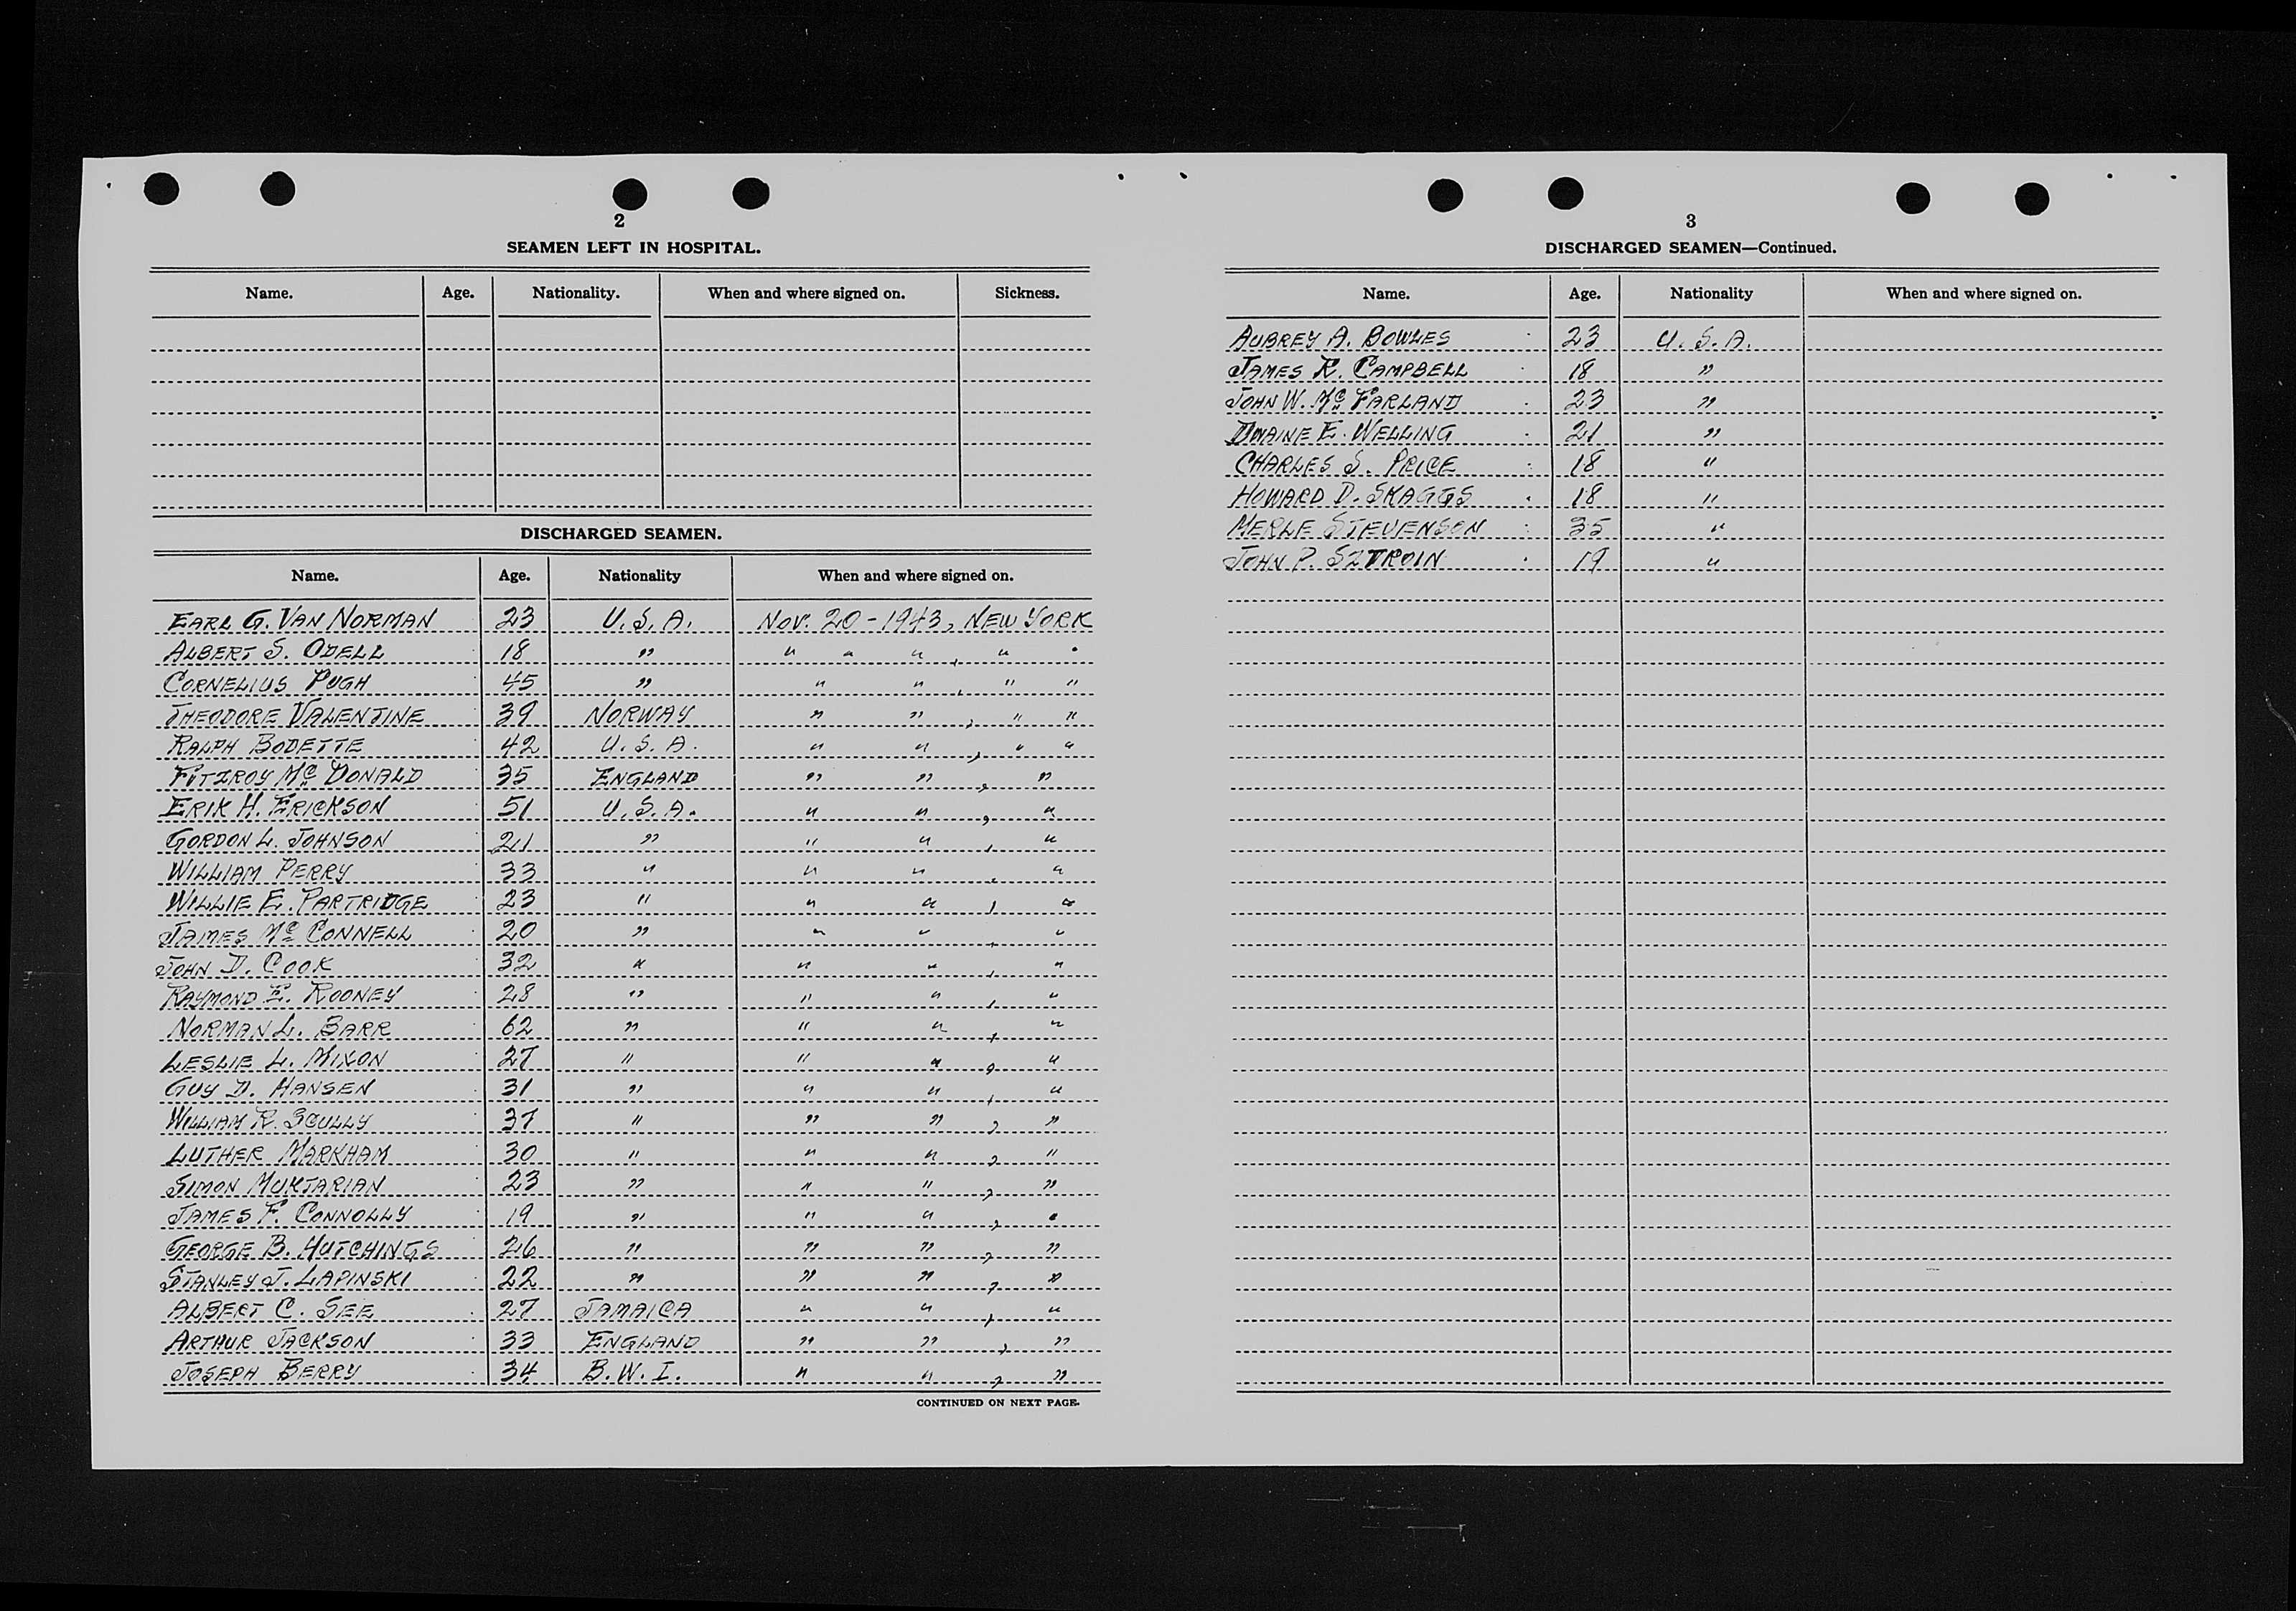 2
SEAMEN LEFT IN HOSPITAL.
Name. Age. Nationality. When and where signed on. Sickness.
DISCHARGED SEAMEN.
Name. Age. Nationality When and where signed on.
EARL G. VAN NORMAN 23 U.S.A. NOV. 20-1943, NEW YORK
ALBERT S. ODELL 18 " " " " , " "
CORNELIUS PUGH 45 " " " , " "
THEODORE VALENTINE 39 NORWAY " " , " "
RALPH BODETTE 42 U.S.A. " " , " "
FITZROY McDONALD 35 ENGLAND " " , "
ERIK H. ERICKSON 51 U.S.A. " " , "
GORDON L. JOHNSON 21 " " " , "
WILLIAM PERRY 33 " " " , "
WILLIE E. PARTRIDGE 23 " " " , "
JAMES McCONNELL 20 " " " , "
JOHN D. COOK 32 " " " , "
RAYMOND E. ROONEY 28 " " " , "
NORMAN L. BARR 62 " " " , "
LESLIE L. MIXON 27 " " " , "
GUY D. HANSEN 31 " " " , "
WILLIAM R. SCULLY 37 " " " , "
LUTHER MARKHAM 30 " " " , "
SIMON MUKTARIAN 23 " " " , "
JAMES F. CONNOLLY 19 " " " , "
GEORGE B. HUTCHINGS 26 " " " , "
STANLEY J. LAPINSKI 22 " " " , "
ALBERT C. SEE 27 JAMAICA " " , "
ARTHUR JACKSON 33 ENGLAND " " , "
JOSEPH BERRY 34 B.W.I. " " , "
CONTINUED ON NEXT PAGE.
3
DISCHARGED SEAMEN—Continued.
Name. Age. Nationality When and where signed on.
AUBREY A. BOWLES 23 U.S.A.
JAMES R. CAMPBELL 18 "
JOHN W. McFARLAND 23 "
DWAINE E. WELLING 21 "
CHARLES S. PRICE 18 "
HOWARD D. SKAGGS 18 "
MERLE STEVENSON 35 "
JOHN P. SZTROIN 19 "